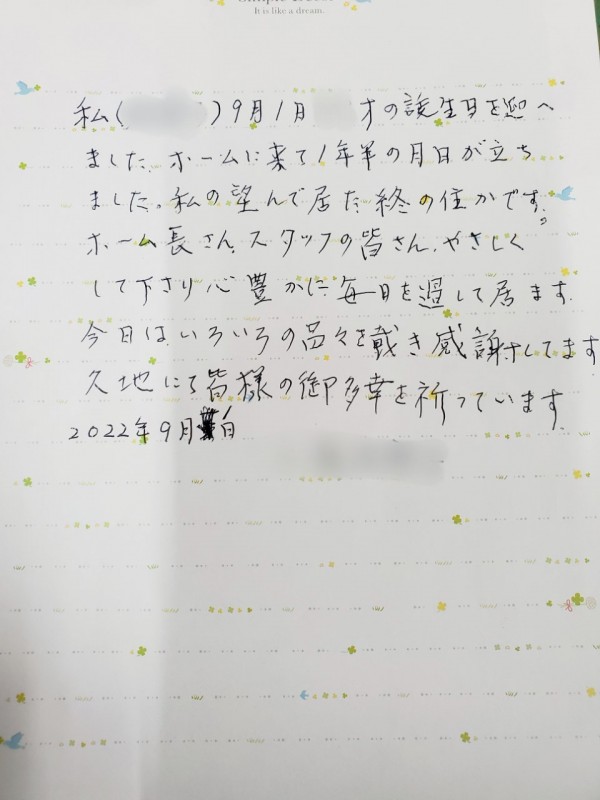 It is like a dream.
私( )9月1日 才の誕生日を迎へ
ました。ホームに来て1年半の月日が立ち
ました。私の望んで居た終の住かです。
ホーム長さん、スタッフの皆さん、やさしく
して下さり心豊かに毎日を過して居ます。
今日はいろいろの品々を戴き感謝してます
久地にて皆様の御多幸を祈っています。
2022年9月 日